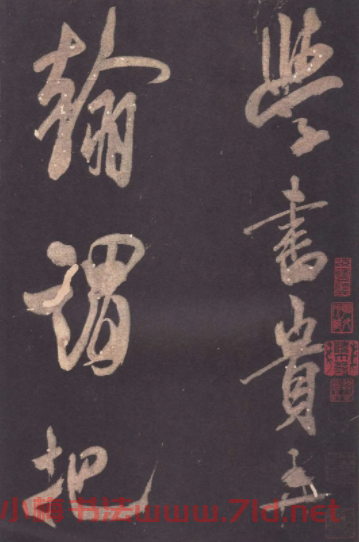 學書貴弄
翰謂把
小梅书法www.71d.net